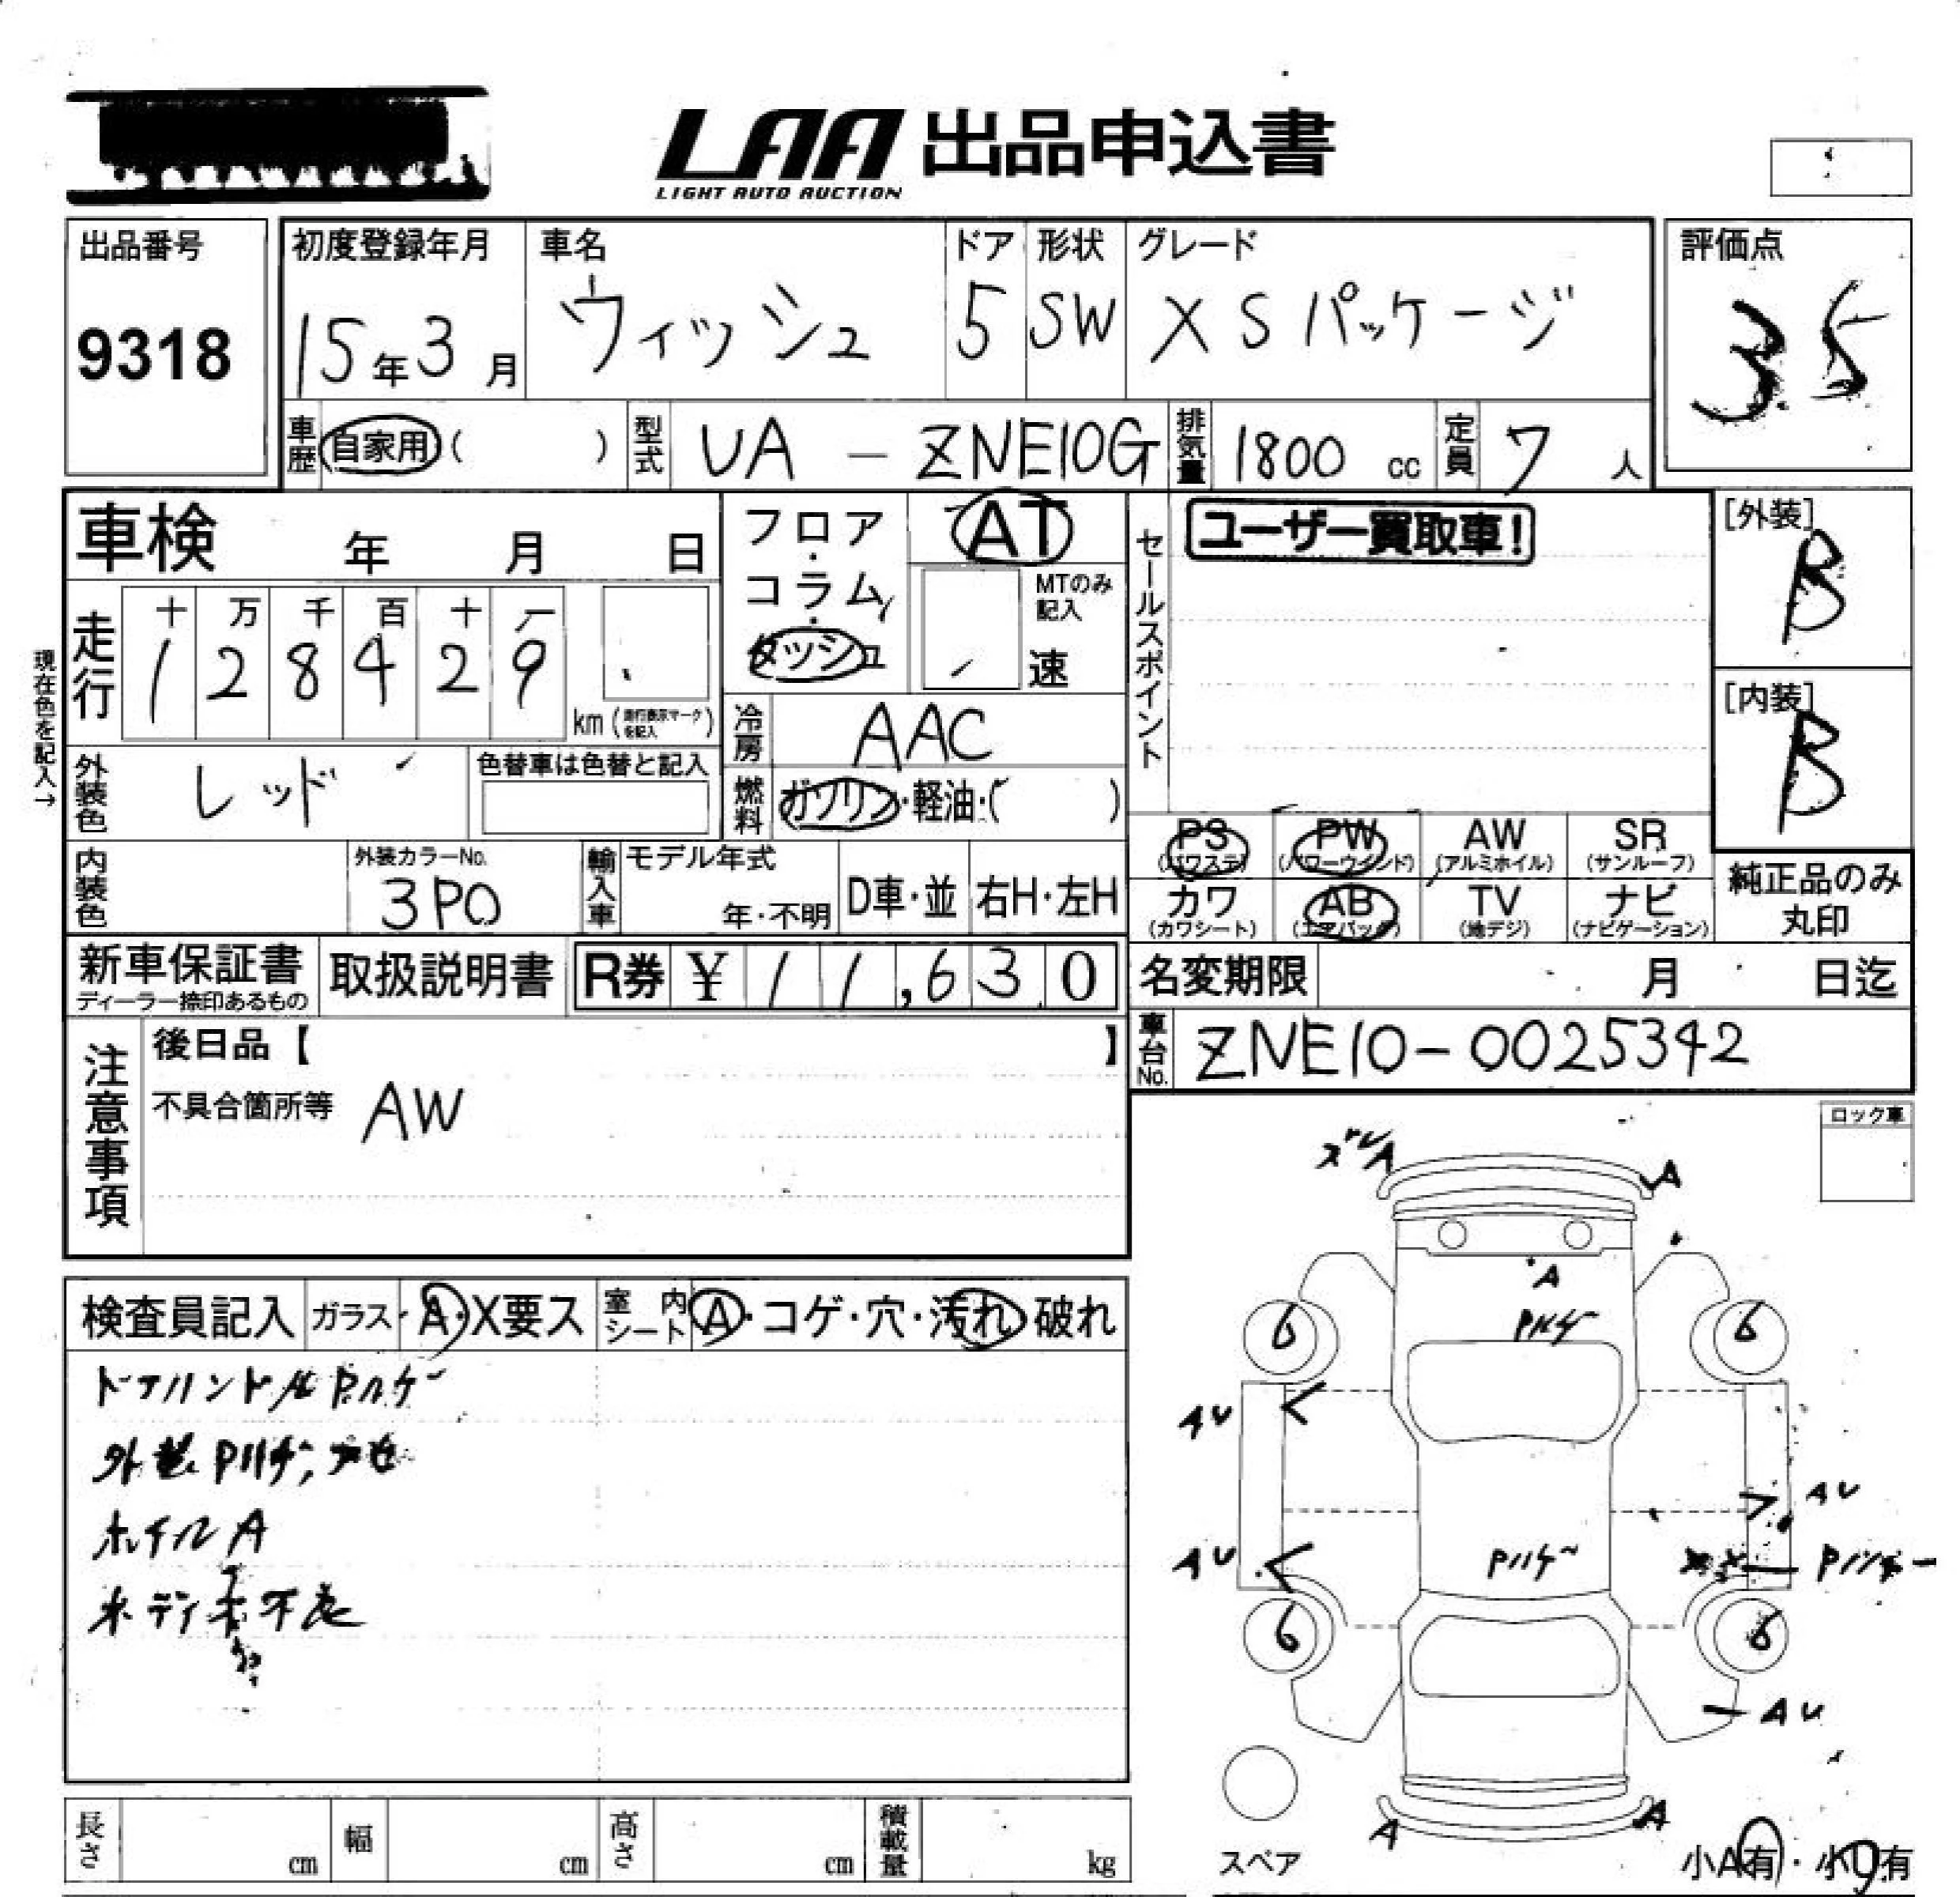 LAA 出品申込書
LIGHT AUTO AUCTION
出品番号 初度登録年月 車名 ドア 形状 グレード 評価点
9318 15年3月 ウィッシュ 5 SW X Sパッケージ 3.5
車歴 自家用( ) 型式 UA - ZNE10G 排気量 1800 cc 定員 7 人
車検 年 月 日
フロア・コラム・ダッシュ AT
MTのみ記入 速
セールスポイント ユーザー買取車!
[外装] B
[内装] B
現在色を記入→
走行 十 万 千 百 十 一
1 2 8 4 2 9 km (走行表示マークを記入)
冷房 AAC
外装色 レッド 色替車は色替と記入
燃料 ガソリン・軽油・( )
PS (パワステ) PW (パワーウインド) AW (アルミホイル) SR (サンルーフ)
カワ (カワシート) AB (エアバッグ) TV (地デジ) ナビ (ナビゲーション)
純正品のみ丸印
内装色 外装カラーNo. 3P0 輸入車 モデル年式 年・不明 D車・並 右H・左H
新車保証書 ディーラー捺印あるもの 取扱説明書 R券 ¥ 11,630
名変期限 月 日迄
車台No. ZNE10-0025342
注意事項 後日品【 】
不具合箇所等 AW
ロック車
検査員記入 ガラス・A・X要ス 室内シート A・コゲ・穴・汚れ・破れ
ドアハンドルPハゲ
外装Pハゲ,
ホイルA
A A
A
Pハゲ
6 6
AU
AU
AU
Pハゲ
6 6
AU
A A
スペア
小A有・小U有
長さ cm 幅 cm 高さ cm 積載量 kg